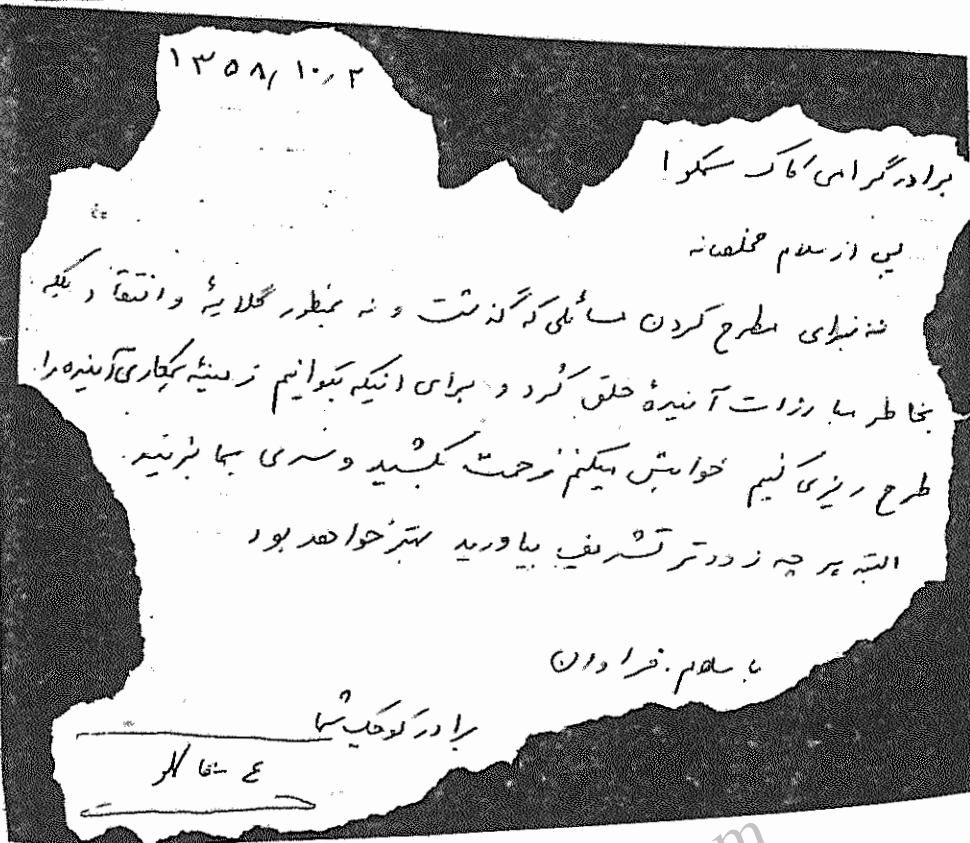 ۱۳۵۸/۱۰/۲
برادر گرامی کاک سمکو!
پس از سلام مخلصانه
نه برای مطرح کردن مسائلی که گذشت و نه بمنظور گلایهٔ و انتقاد بلکه
بخاطر مبارزات آیندهٔ خلق کُرد و برای اینکه بتوانیم زمینهٔ همکاری آینده را
طرح ریزی کنیم خواهش میکنم زحمت بکشید و سری بما بزنید.
البته هر چه زودتر تشریف بیاورید بهتر خواهد بود
با سلام فراوان
برادر کوچک شما
ع
m